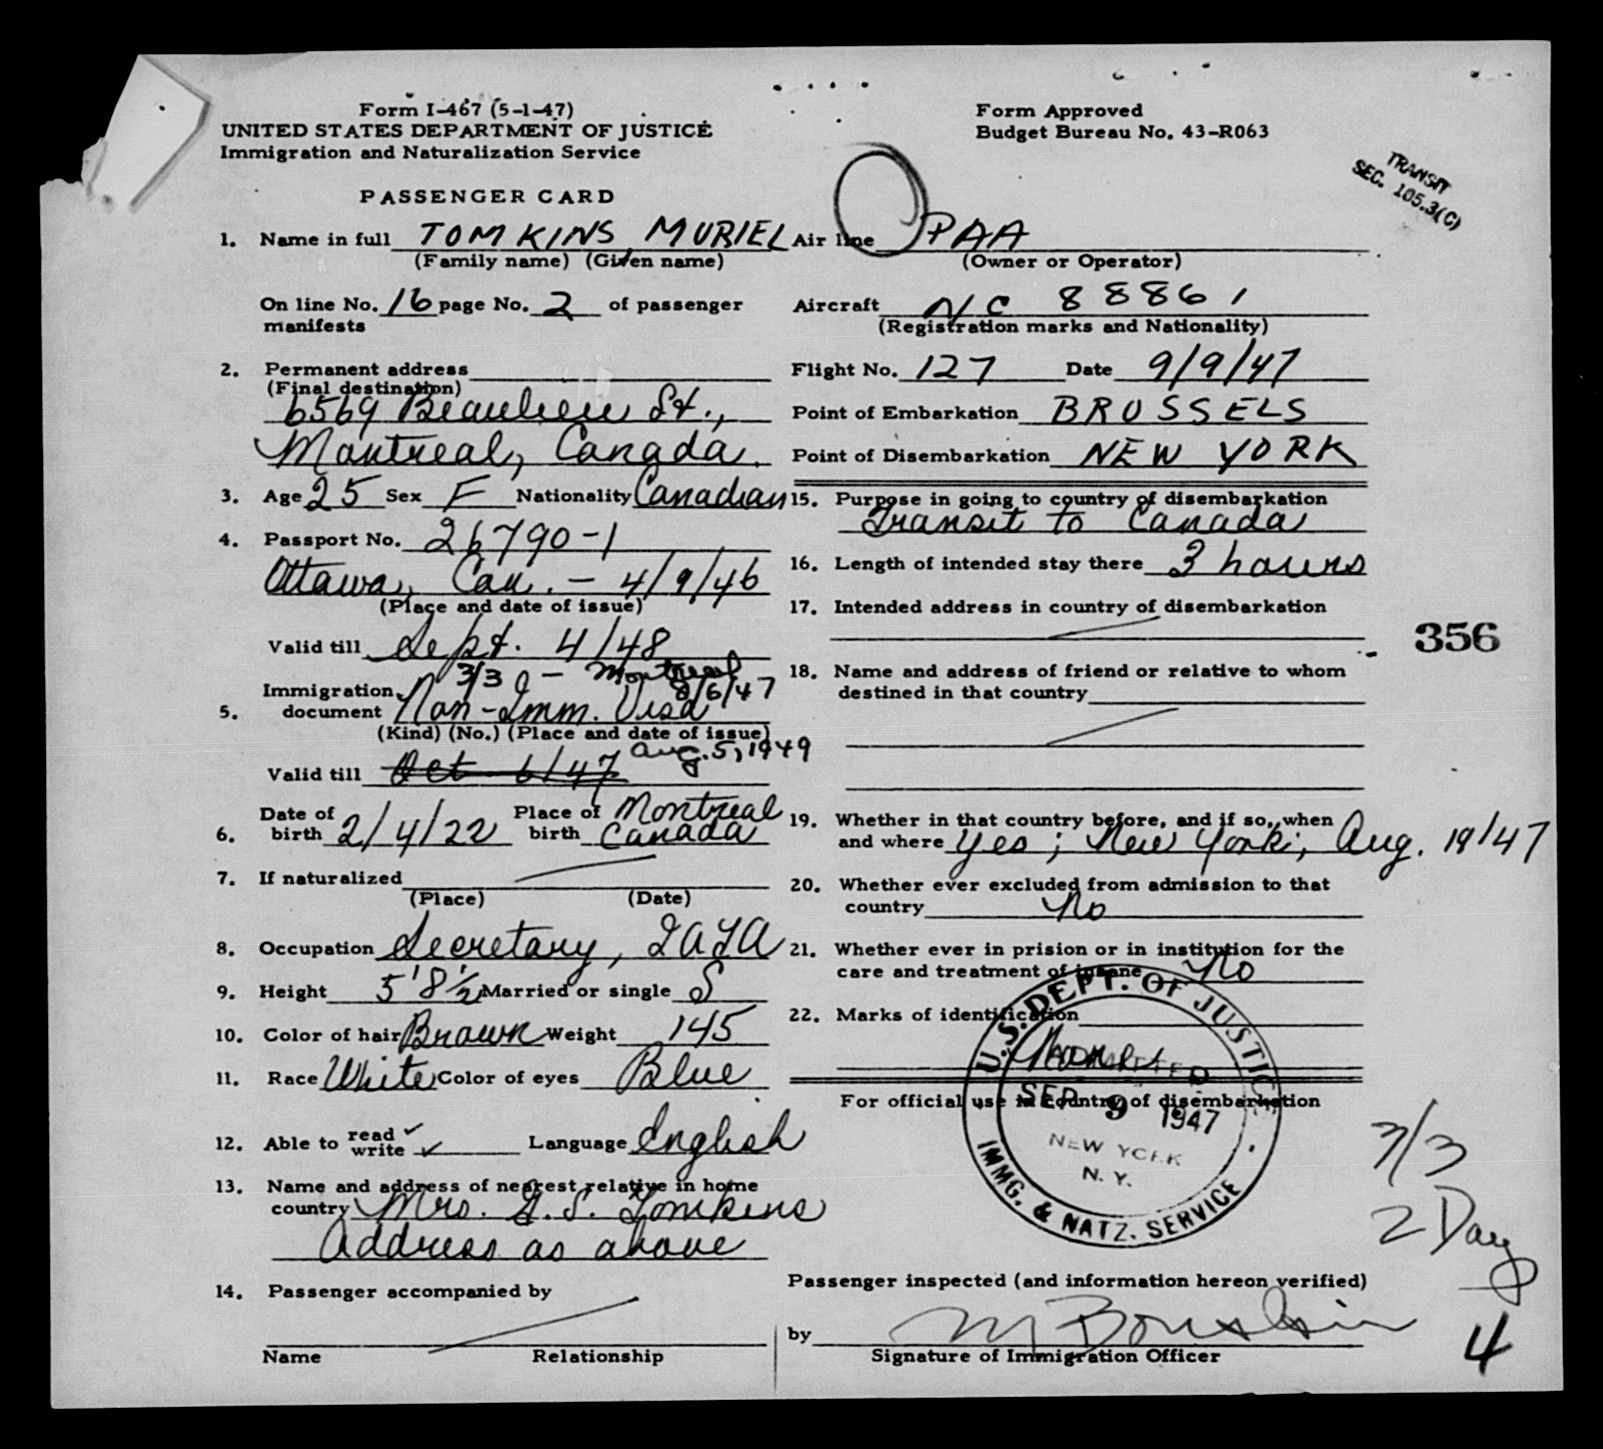 Form I-467 (5-1-47)
UNITED STATES DEPARTMENT OF JUSTICE
Immigration and Naturalization Service
PASSENGER CARD
Form Approved
Budget Bureau No. 43-R063
TRANSIT
SEC. 105.3(C)
1. Name in full TOMKINS, MURIEL
(Family name) (Given name)
On line No. 16 page No. 2 of passenger
manifests
2. Permanent address
(Final destination)
6569 Beaulieu St.,
Montreal, Canada.
3. Age 25 Sex F Nationality Canadian
4. Passport No. 26790-1
Ottawa, Can. - 4/9/46
(Place and date of issue)
Valid till Sept. 4/48
3/3 - Montreal
8/6/47
5. Immigration document Non-Imm. Visa
(Kind) (No.) (Place and date of issue)
Aug. 5, 1949
Valid till Oct 6/47
6. Date of birth 2/4/22 Place of birth Montreal Canada
7. If naturalized
(Place) (Date)
8. Occupation Secretary, IATA
9. Height 5'8 1/2 Married or single S
10. Color of hair Brown Weight 145
11. Race White Color of eyes Blue
12. Able to read ✓ write ✓ Language English
13. Name and address of nearest relative in home
country Mrs. G. S. Tomkins
Address as above
14. Passenger accompanied by
Name Relationship
Air line PAA
(Owner or Operator)
Aircraft NC 88861
(Registration marks and Nationality)
Flight No. 127 Date 9/9/47
Point of Embarkation BRUSSELS
Point of Disembarkation NEW YORK
15. Purpose in going to country of disembarkation
Transit to Canada
16. Length of intended stay there 3 hours
17. Intended address in country of disembarkation
356
18. Name and address of friend or relative to whom
destined in that country
19. Whether in that country before, and if so, when
and where Yes; New York; Aug. 19/47
20. Whether ever excluded from admission to that
country No
21. Whether ever in prision or in institution for the
care and treatment of insane No
22. Marks of identification
None
For official use in country of disembarkation
U.S. DEPT. OF JUSTICE
ADMITTED
SEP 9 1947
NEW YORK
N. Y.
IMMG. & NATZ. SERVICE
3/3
2 Day
Passenger inspected (and information hereon verified)
by
Signature of Immigration Officer
4